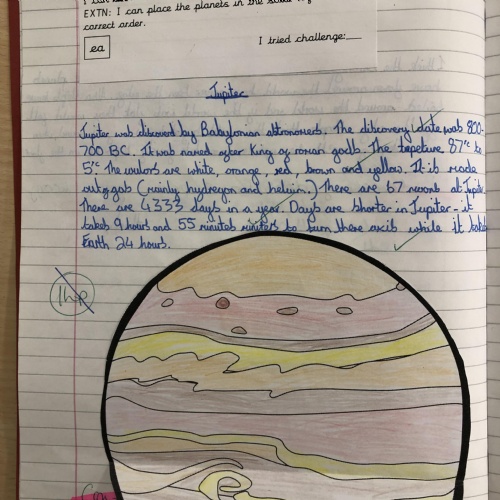 EXTN: I can place the planets in the
correct order.
ea
I tried challenge:__
Jupiter
Jupiter was discoverd by Babylonian astronomers. The discovery date was 800-
700 BC. It was named after King of roman gods. The tepeture 87°c to
5°c. The coulors are white, orange, red, brown and yellow. It is made
out of gas (mainly hydregon and heliuim.) There are 67 moons at Jupiter
There are 4333 days in a year. Days are shorter in Jupiter - it
takes 9 hours and 55 minutes to turn there axis while it takes
Earth 24 hours.